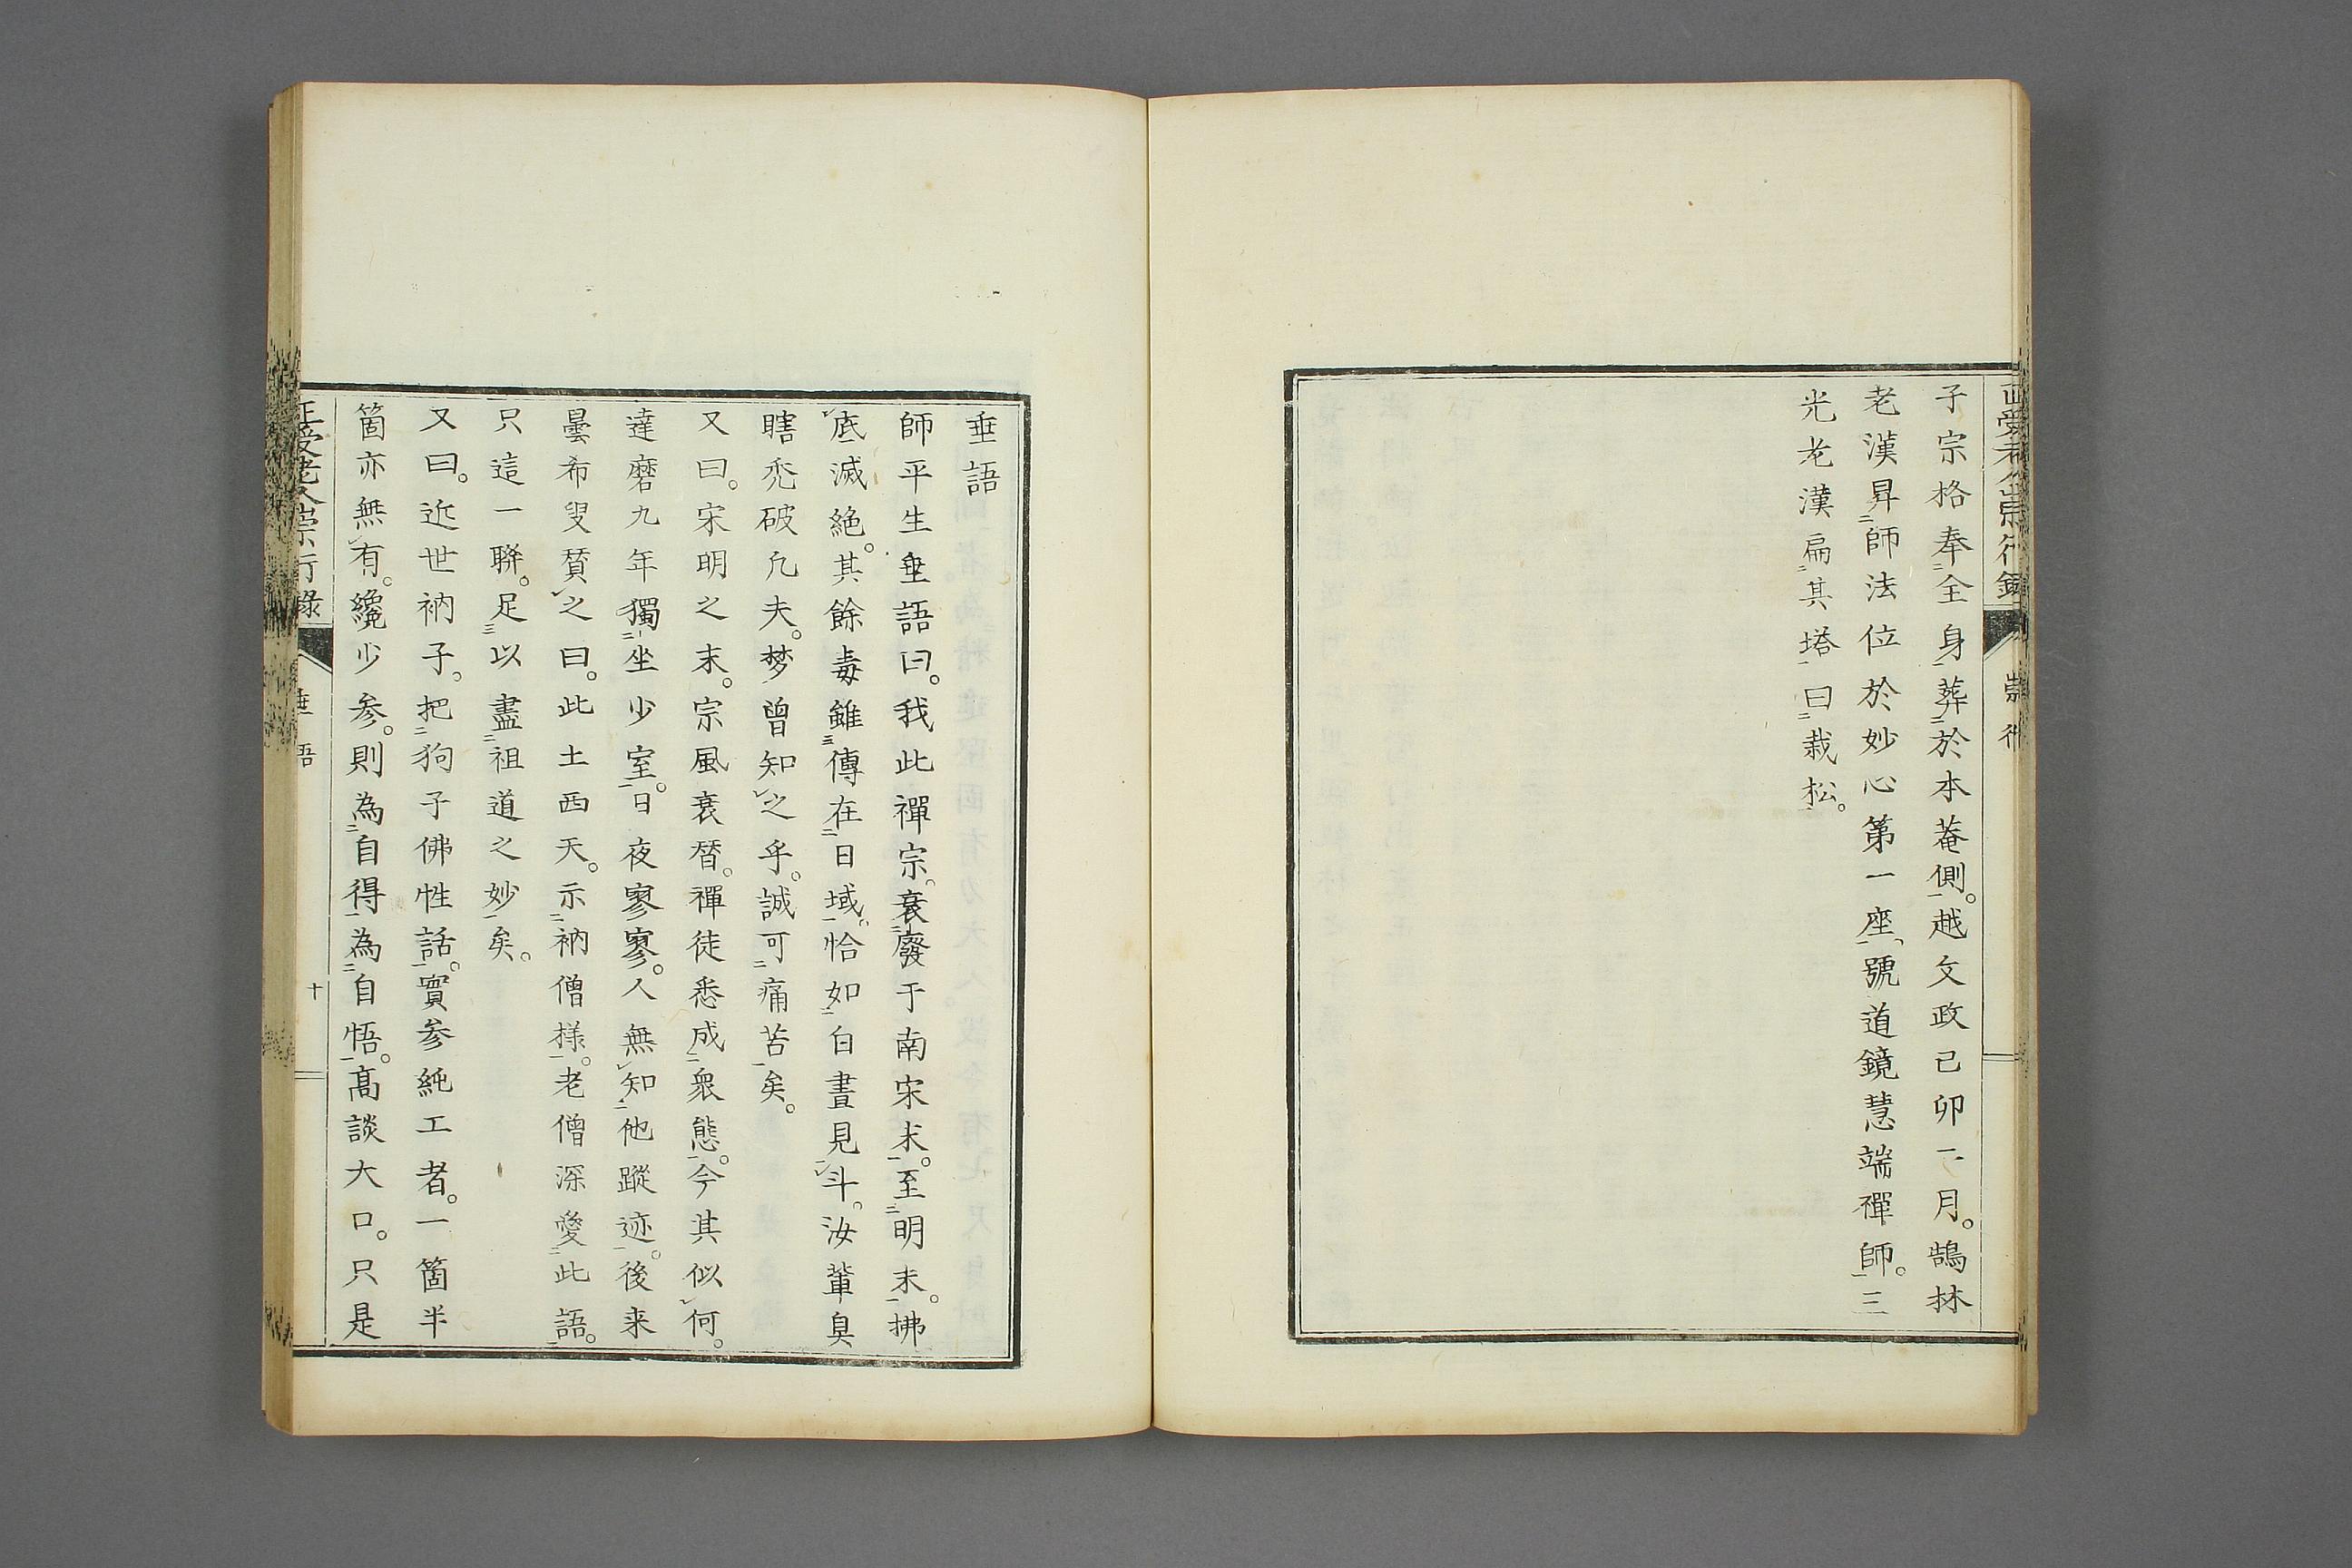 正受老人崇行録
崇行
子宗格奉全身葬於本菴側。越文政己卯二月。鵠林
老漢昇師法位於妙心第一座、號道鏡慧端禪師。三
光老漢扁其塔曰栽松。
垂語
師平生垂語曰。我此禪宗。衰廢于南宋末。至明末。拂
底滅絶。其餘毒雖傳在日域。恰如白晝見斗。汝輩臭
瞎禿破凡夫。梦曾知之乎。誠可痛苦矣。
又曰。宋明之末。宗風衰替。禪徒悉成衆態。今其似何。
達磨九年獨坐少室。日夜寥寥。人無知他蹤迹。後来
曇希叟賛之曰。此土西天。示衲僧様。老僧深愛此語。
只這一聯。足以盡祖道之妙矣。
又曰。近世衲子。把狗子佛性話。實参純工者。一箇半
箇亦無有。纔少参。則為自得為自悟。髙談大口。只是
正受老人崇行録
垂語
十